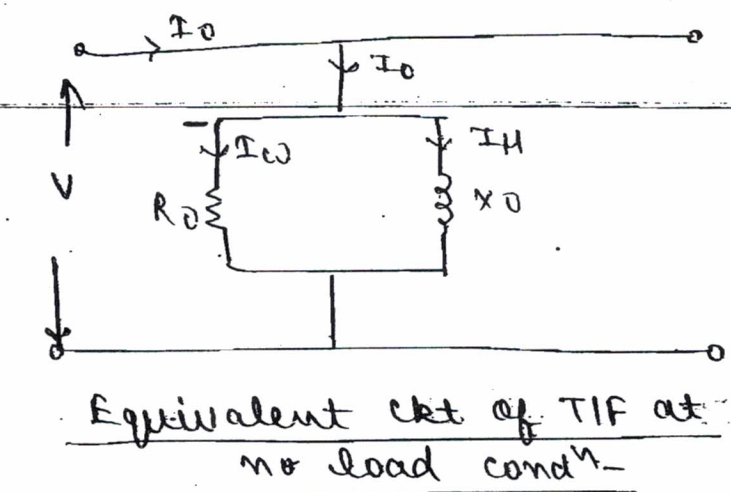 I0
I0
Iω
IH
V
R0
X0
Equivalent ckt of T/F at
no load condn-